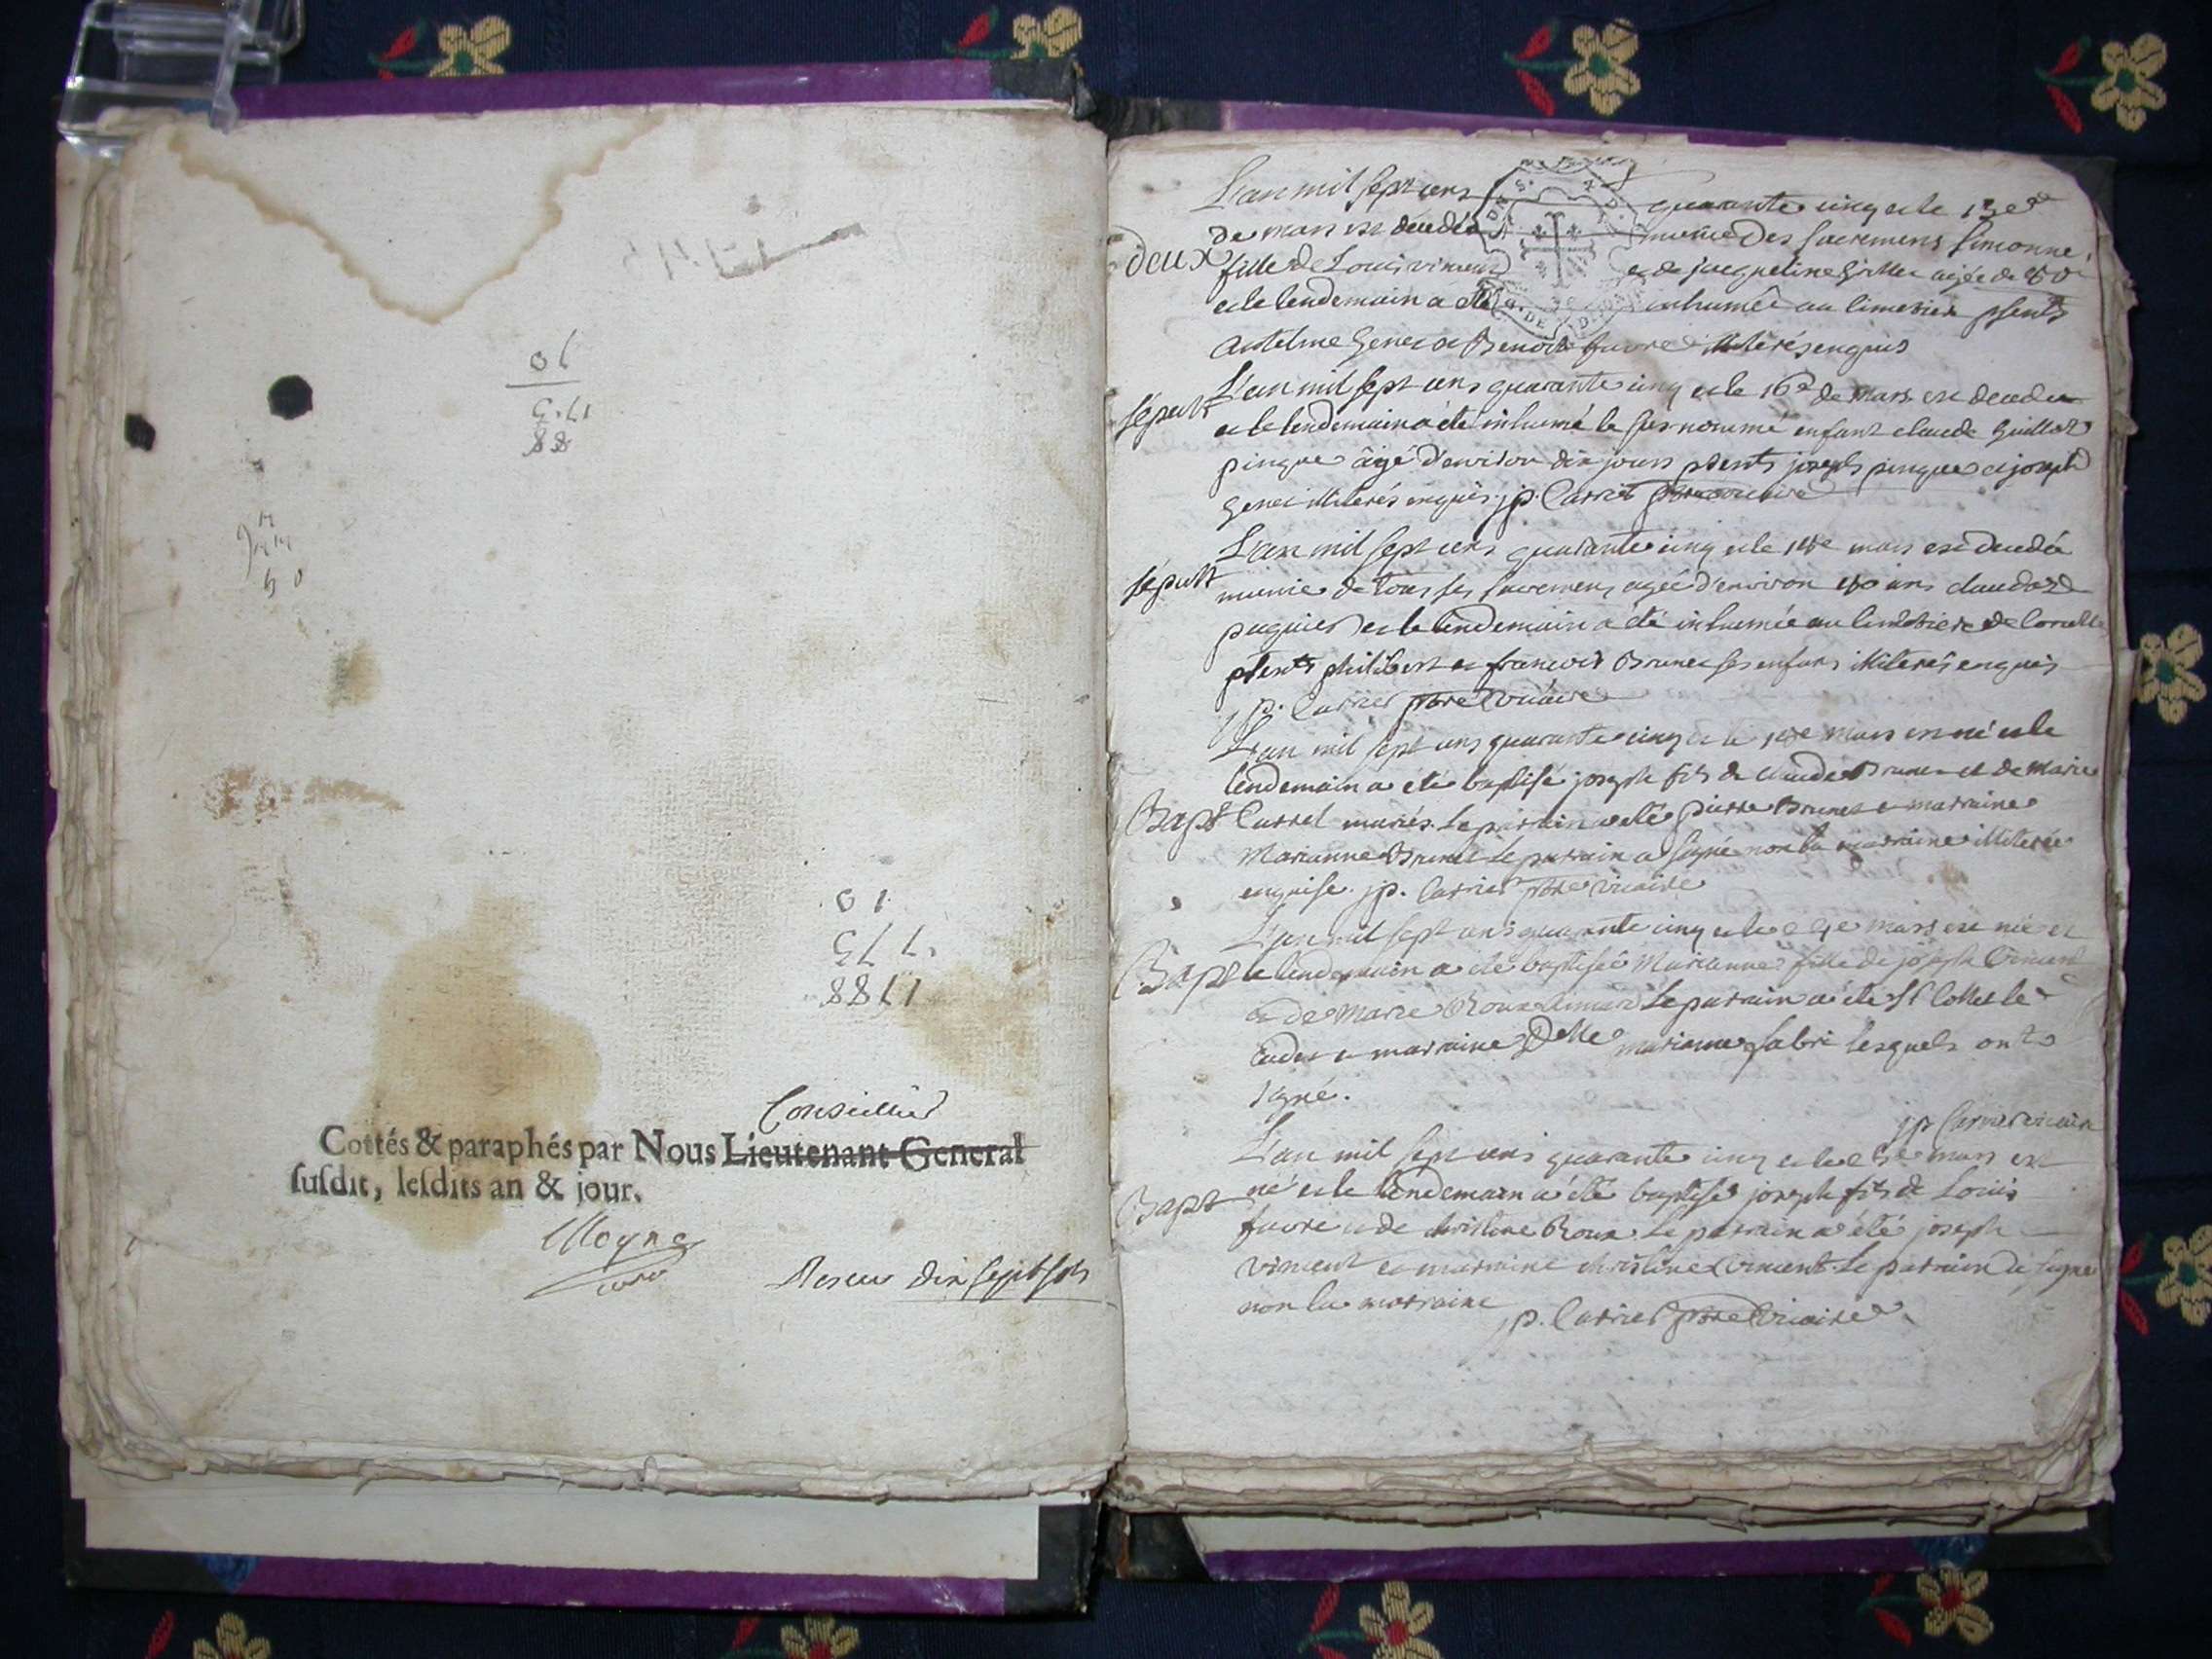 10
17.5
88
10
1775
1788
Conseiller
Cottés & paraphés par Nous Lieutenant General
susdit, lesdits an & jour.
Moyne
Receu dix sept sols
L'an mil sept cens quarante cinq et le
de mars est decedée munie des sacremens simonne
deux fille de Louis vincent et de jacqueline agée de
et le lendemain a été inhumée au cimetiere psents
Antelme Genet et Benoit favre illiterés enquis
L'an mil sept cens quarante cinq et le 16e de mars est decedé
sépult et le lendemain a été inhumé le susnommé enfant claude Guillot
pingue âgé d'environ dix jours psents joseph pingue et joseph
Genet illiterés enquis jp. Carrier
L'an mil sept cens quarante cinq et le mars est decedée
sépult munie de tous ses sacremens agée d'environ ans claudaz
puguier et le lendemain a été inhumée au cimetiere de
psents philibert et francois Brunet ses enfans illiterés enquis
jp. Carrier pbre vicaire
L'an mil sept cens quarante cinq et le mars est né et le
lendemain a été baptisé joseph fils de claude Brunet et de Marie
Bapt Carrel mariés. Le parrain a été pierre Brunet et marraine
Marianne Brunet Le parrain a signé non la marraine illiterée
enquise. jp. Carrier pbre vicaire
L'an mil sept cens quarante cinq et le mars est née et
Bapt le lendemain a été baptisée Marianne fille de joseph Vincent
et de Marie Roux Le parrain a été Sr Collet le
cadet et marraine Delle marianne fabri lesquels ont
signé.
jp Carrier vicaire
L'an mil sept cens quarante cinq et le mars est
Bapt né et le lendemain a été baptisé joseph fils de Louis
favre et de christine Roux Le parrain a été joseph
vincent et marraine christine vincent Le parrain a signé
non la marraine
jp. Carrier pbre vicaire